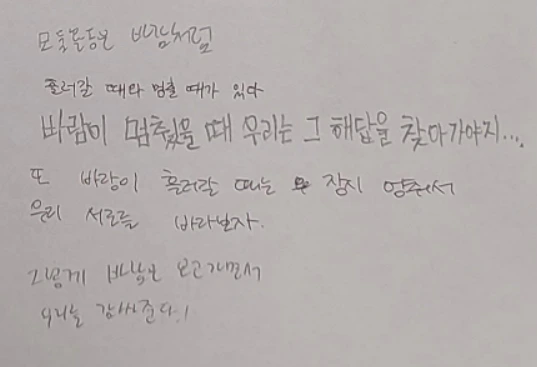 모든 바람처럼
흘러갈 때와 멈출 때가 있다
바람이 멈췄을 때 우리는 그 해답을 찾아가야지...
또 바람이 흘러갈 때는 잠시 멈춰서
우리 서로를 바라보자.
그렇게 바람은 오고가면서
우리를 감싸준다!